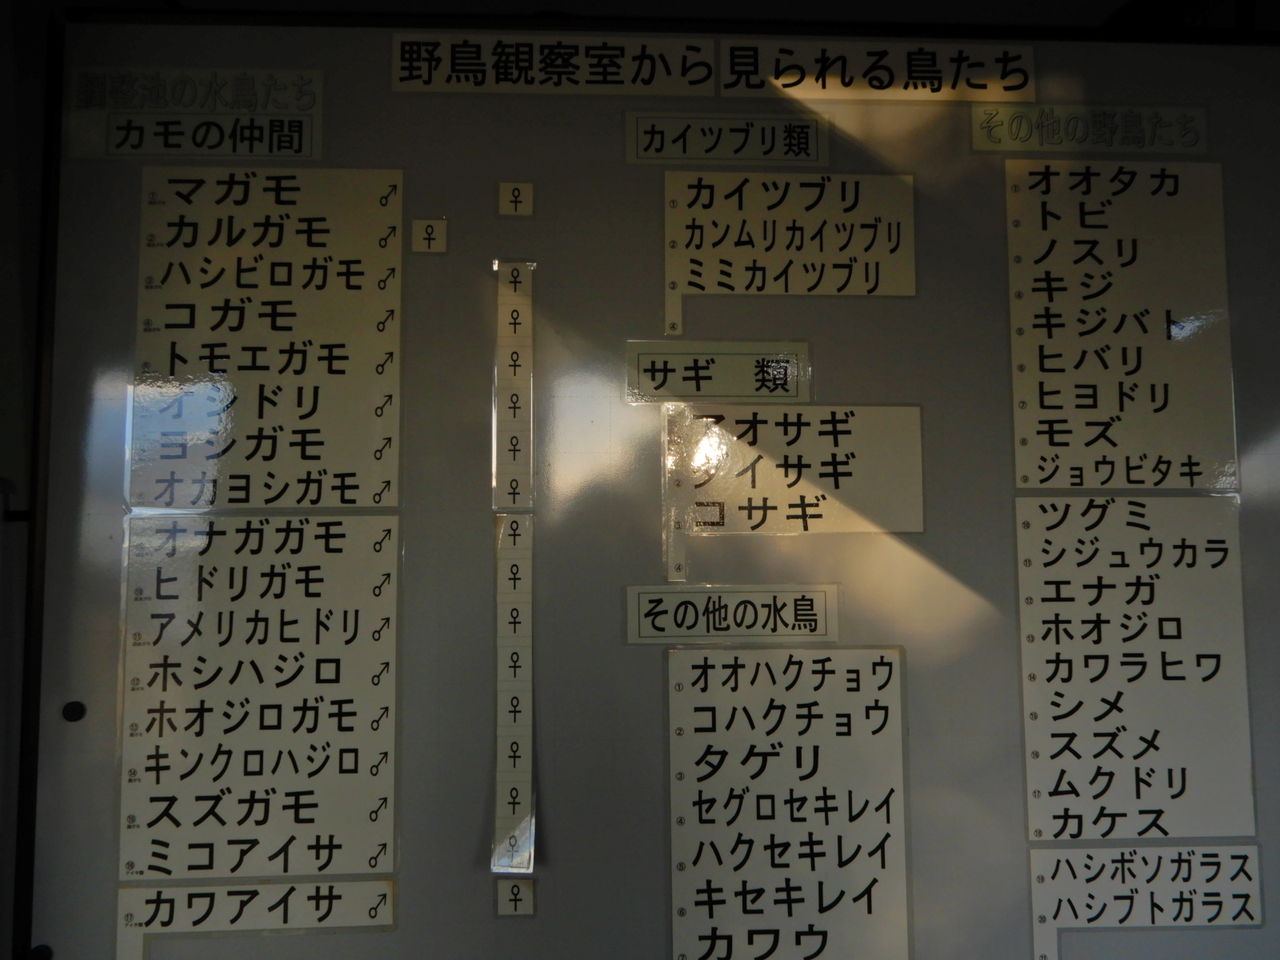 野鳥観察室から見られる鳥たち
調整池の水鳥たち
カモの仲間
①マガモ ♂ ♀
②カルガモ ♂ ♀
③ハシビロガモ ♂ ♀
④コガモ ♂ ♀
トモエガモ ♂ ♀
オシドリ ♂ ♀
ヨシガモ ♂ ♀
オカヨシガモ ♂ ♀
オナガガモ ♂ ♀
⑩ヒドリガモ ♂ ♀
⑪アメリカヒドリ ♂ ♀
⑫ホシハジロ ♂ ♀
⑬ホオジロガモ ♂ ♀
⑭キンクロハジロ ♂ ♀
⑮スズガモ ♂ ♀
⑯ミコアイサ ♂ ♀
⑰カワアイサ ♂ ♀
カイツブリ類
①カイツブリ
②カンムリカイツブリ
③ミミカイツブリ
④
サギ 類
アオサギ
②ダイサギ
③コサギ
④
その他の水鳥
①オオハクチョウ
②コハクチョウ
③タゲリ
④セグロセキレイ
⑤ハクセキレイ
⑥キセキレイ
⑦カワウ
その他の野鳥たち
①オオタカ
②トビ
③ノスリ
④キジ
⑤キジバト
⑥ヒバリ
⑦ヒヨドリ
⑧モズ
⑨ジョウビタキ
⑩ツグミ
⑪シジュウカラ
⑫エナガ
⑬ホオジロ
⑭カワラヒワ
⑮シメ
⑯スズメ
⑰ムクドリ
⑱カケス
⑲ハシボソガラス
⑳ハシブトガラス